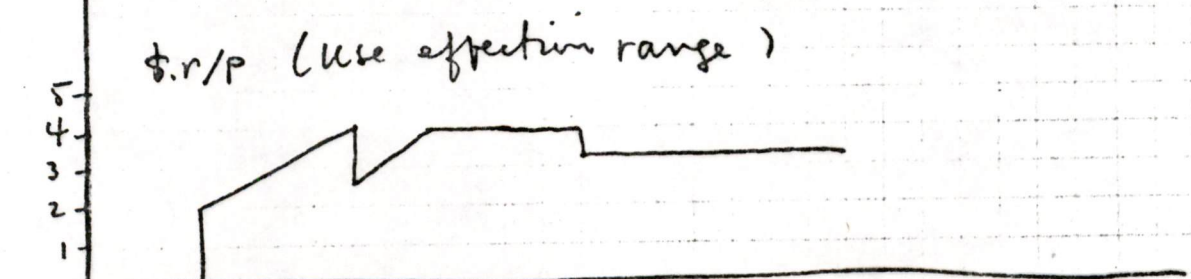 $.r/p (use effective range)
5
4
3
2
1